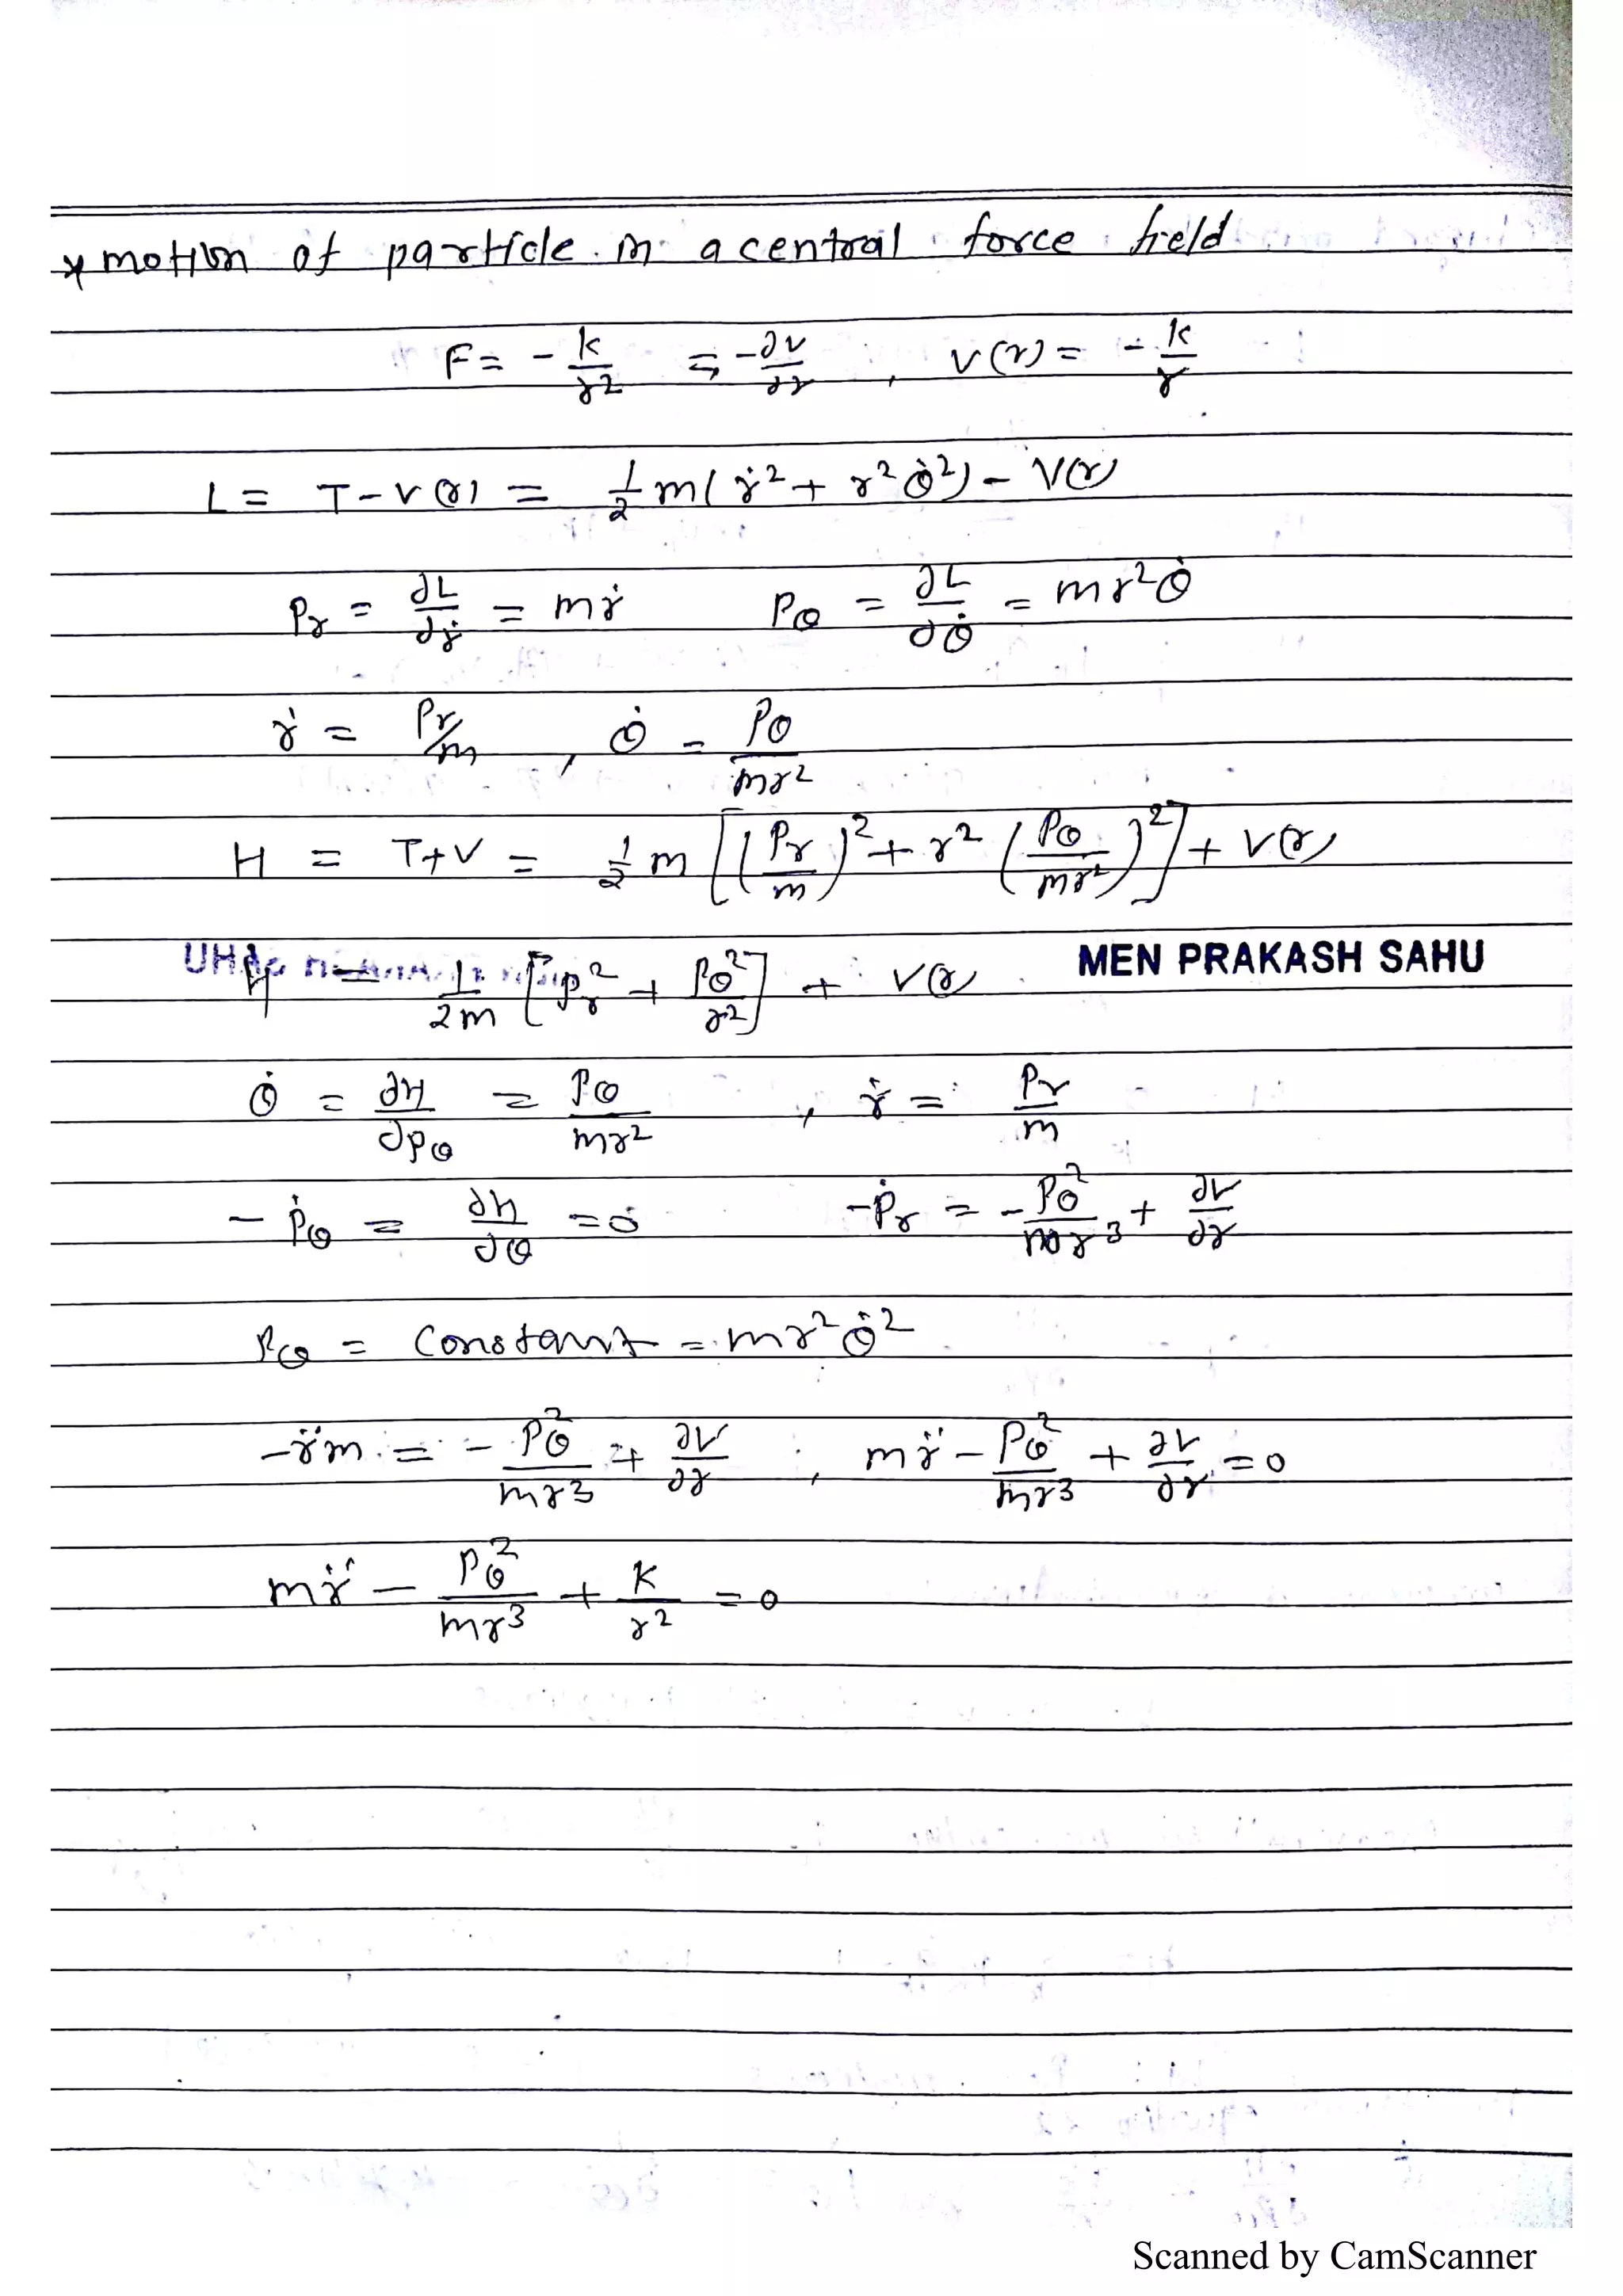 * motion of particle in a central force field
F = - k/r2 = -∂V/∂r , V(r) = - k/r
L = T - V(r) = 1/2 m( ṙ2 + r2 θ̇2) - V(r)
Pr = ∂L/∂ṙ = mṙ Pθ = ∂L/∂θ̇ = mr2θ̇
ṙ = Pr/m , θ̇ = Pθ/mr2
H = T+V = 1/2 m [(Pr/m)2 + r2 (Pθ/mr2)2] + V(r)
MEN PRAKASH SAHU
H = 1/2m [Pr2 + Pθ2/r2] + V(r)
θ̇ = ∂H/∂pθ = Pθ/mr2 , ṙ = Pr/m
- Ṗθ = ∂H/∂θ = 0 -Ṗr = - Pθ2/mr3 + ∂V/∂r
Pθ = Constant = mr2 θ̇2
-r̈m = - Pθ2/mr3 + ∂V/∂r , mr̈ - Pθ2/mr3 + ∂V/∂r = 0
mr̈ - Pθ2/mr3 + K/r2 = 0
Scanned by CamScanner